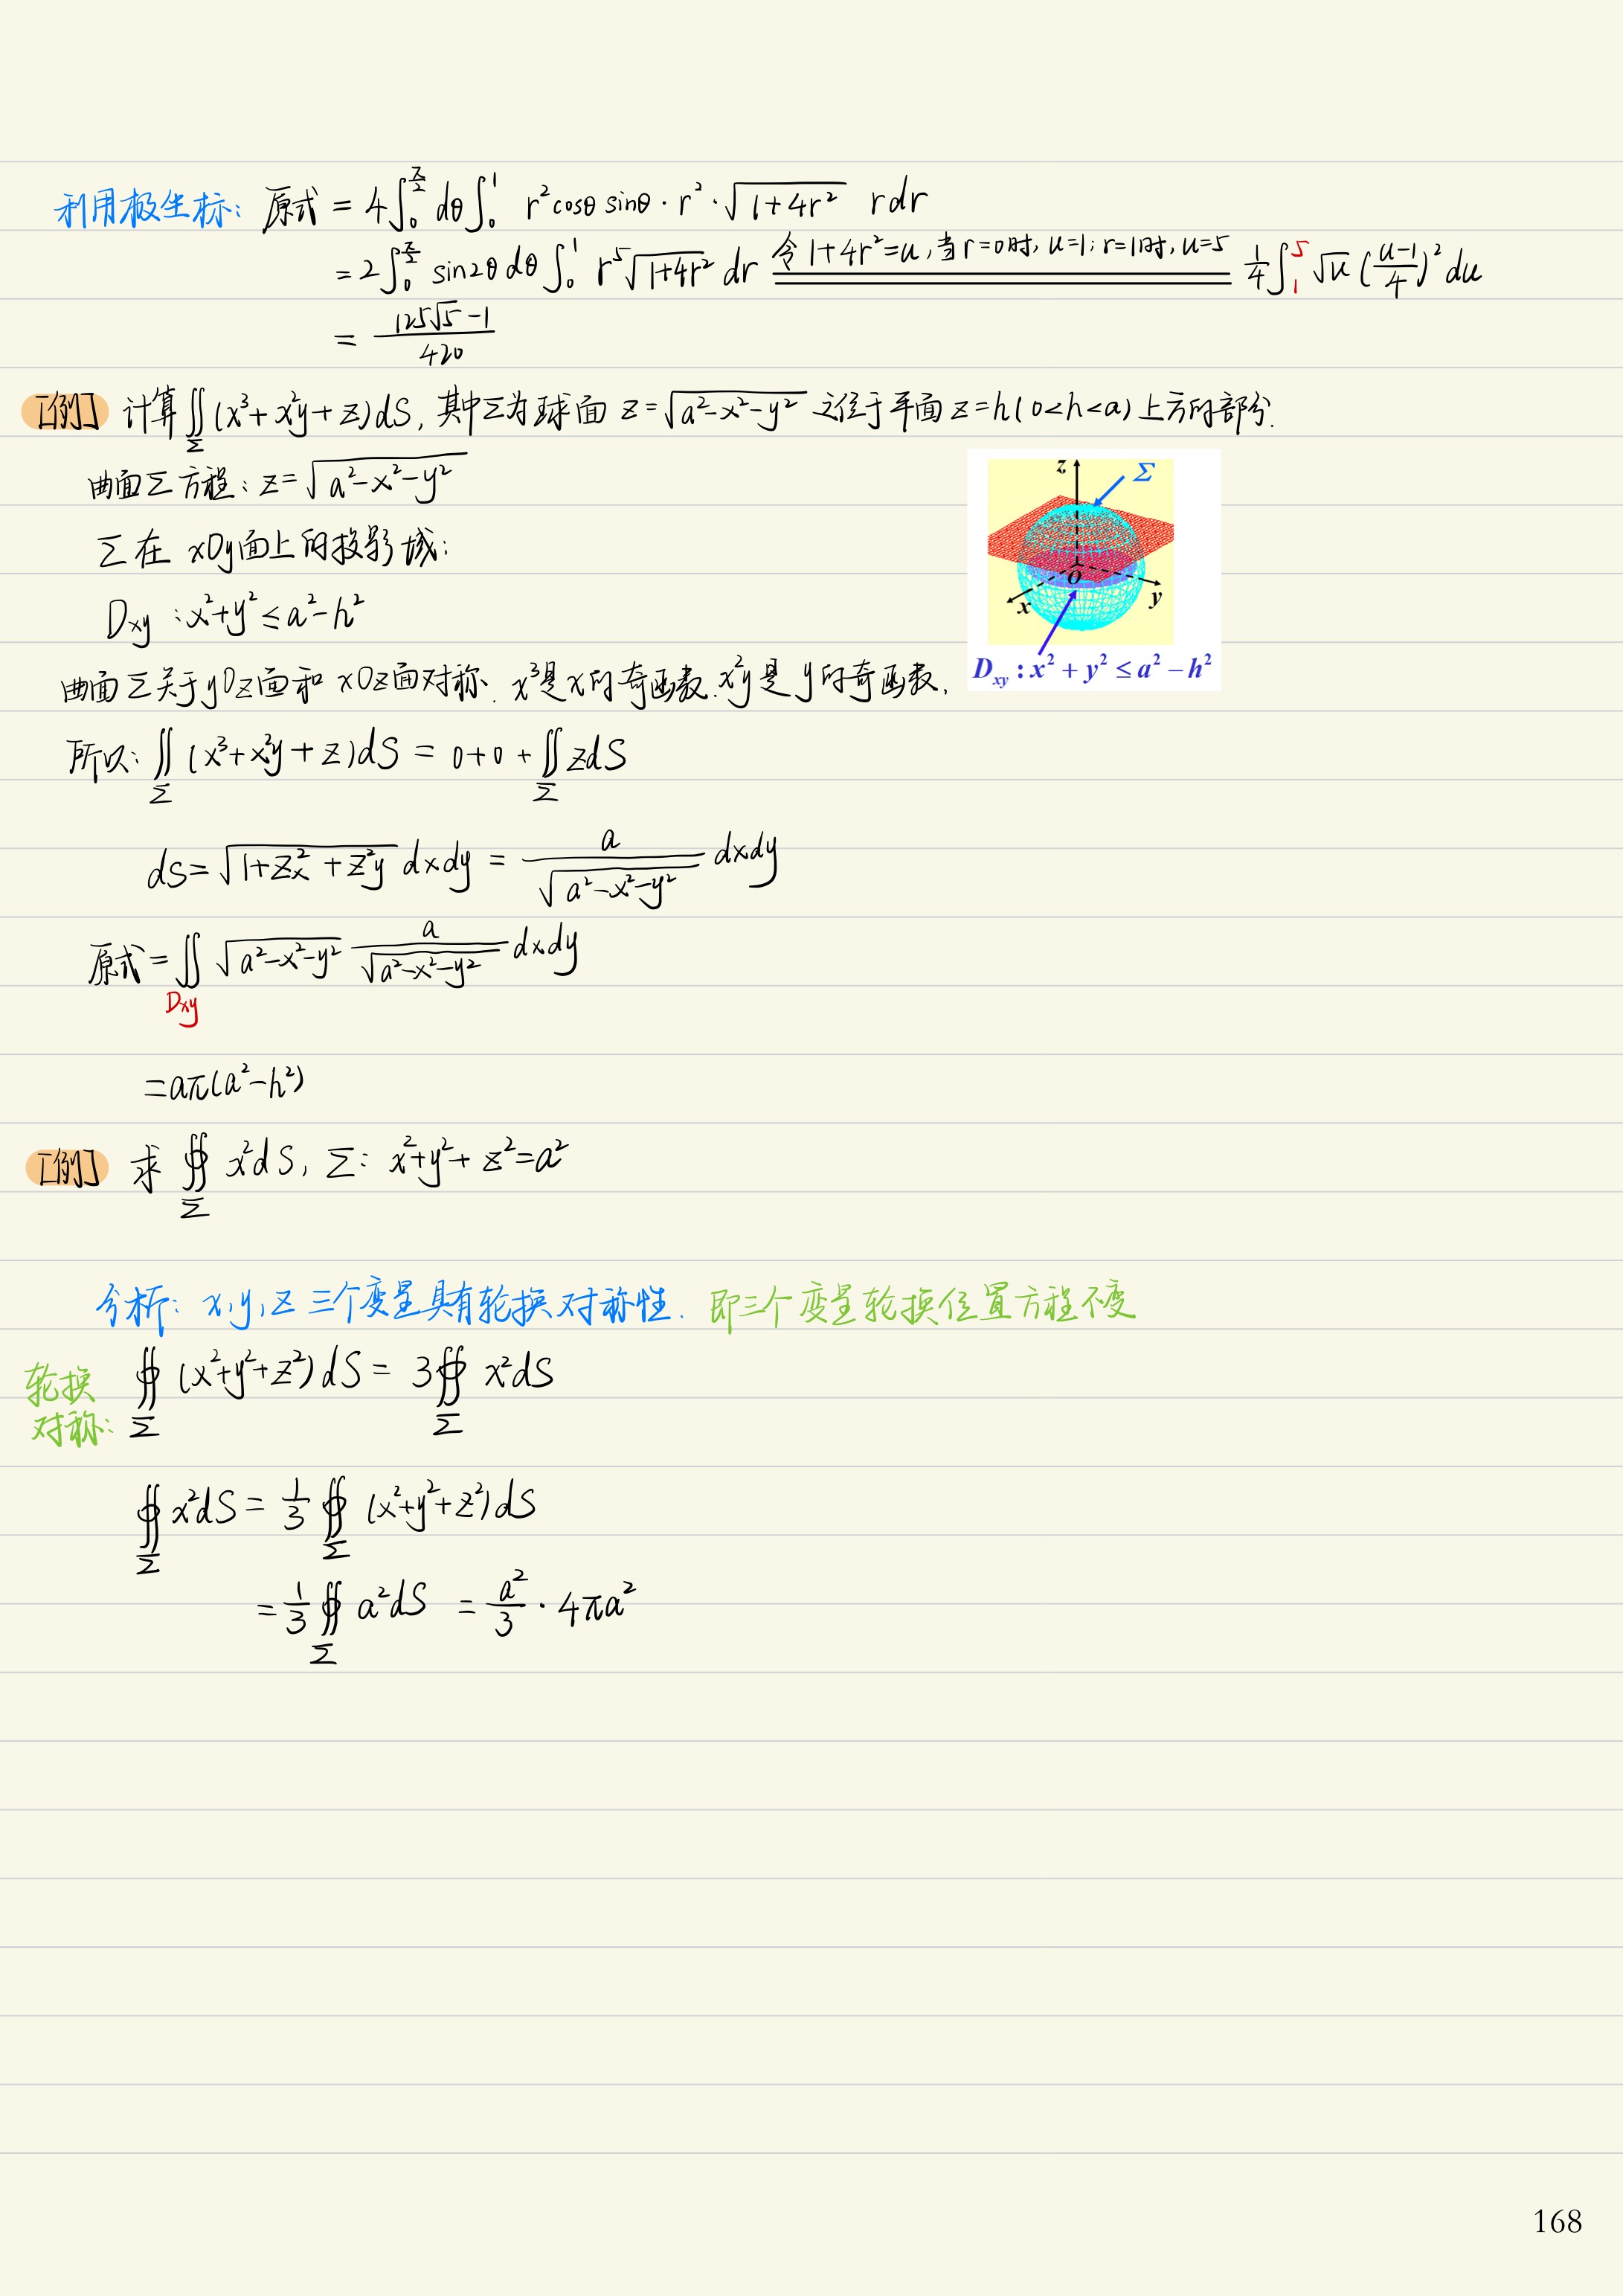 利用极坐标: 原式 = 4∫₀^(π/2) dθ ∫₀¹ r²cosθ sinθ · r² · √(1+4r²) r dr
= 2∫₀^(π/2) sin2θ dθ ∫₀¹ r⁵√(1+4r²) dr 令 1+4r²=u, 当 r=0时, u=1; r=1时, u=5 1/4 ∫₁⁵ √u ((u-1)/4)² du
= (125√5 -1)/420
[例] 计算 ∬_Σ (x³+x²y+z)dS, 其中Σ为球面 z=√(a²-x²-y²) 之位于平面 z=h(0<h<a)上方的部分.
曲面Σ方程: z=√(a²-x²-y²)
Σ在 xOy面上的投影域:
Dxy : x²+y² ≤ a²-h²
曲面Σ关于yOz面和 xOz面对称. x³是x的奇函数. x²y是 y的奇函数.
z
Σ
O
x
y
Dxy : x² + y² ≤ a² − h²
所以: ∬_Σ (x³+x²y+z)dS = 0+0+∬_Σ zdS
dS=√(1+z²x+z²y) dxdy = a/√(a²-x²-y²) dxdy
原式=∬_Dxy √(a²-x²-y²) a/√(a²-x²-y²) dxdy
=aπ(a²-h²)
[例] 求 ∯_Σ x²dS, Σ: x²+y²+z²=a²
分析: x,y,z 三个变量具有轮换对称性. 即三个变量轮换位置方程不变
轮换对称: ∯_Σ (x²+y²+z²)dS = 3∯_Σ x²dS
∯_Σ x²dS = 1/3 ∯_Σ (x²+y²+z²)dS
= 1/3 ∯_Σ a²dS = a²/3 · 4πa²
168